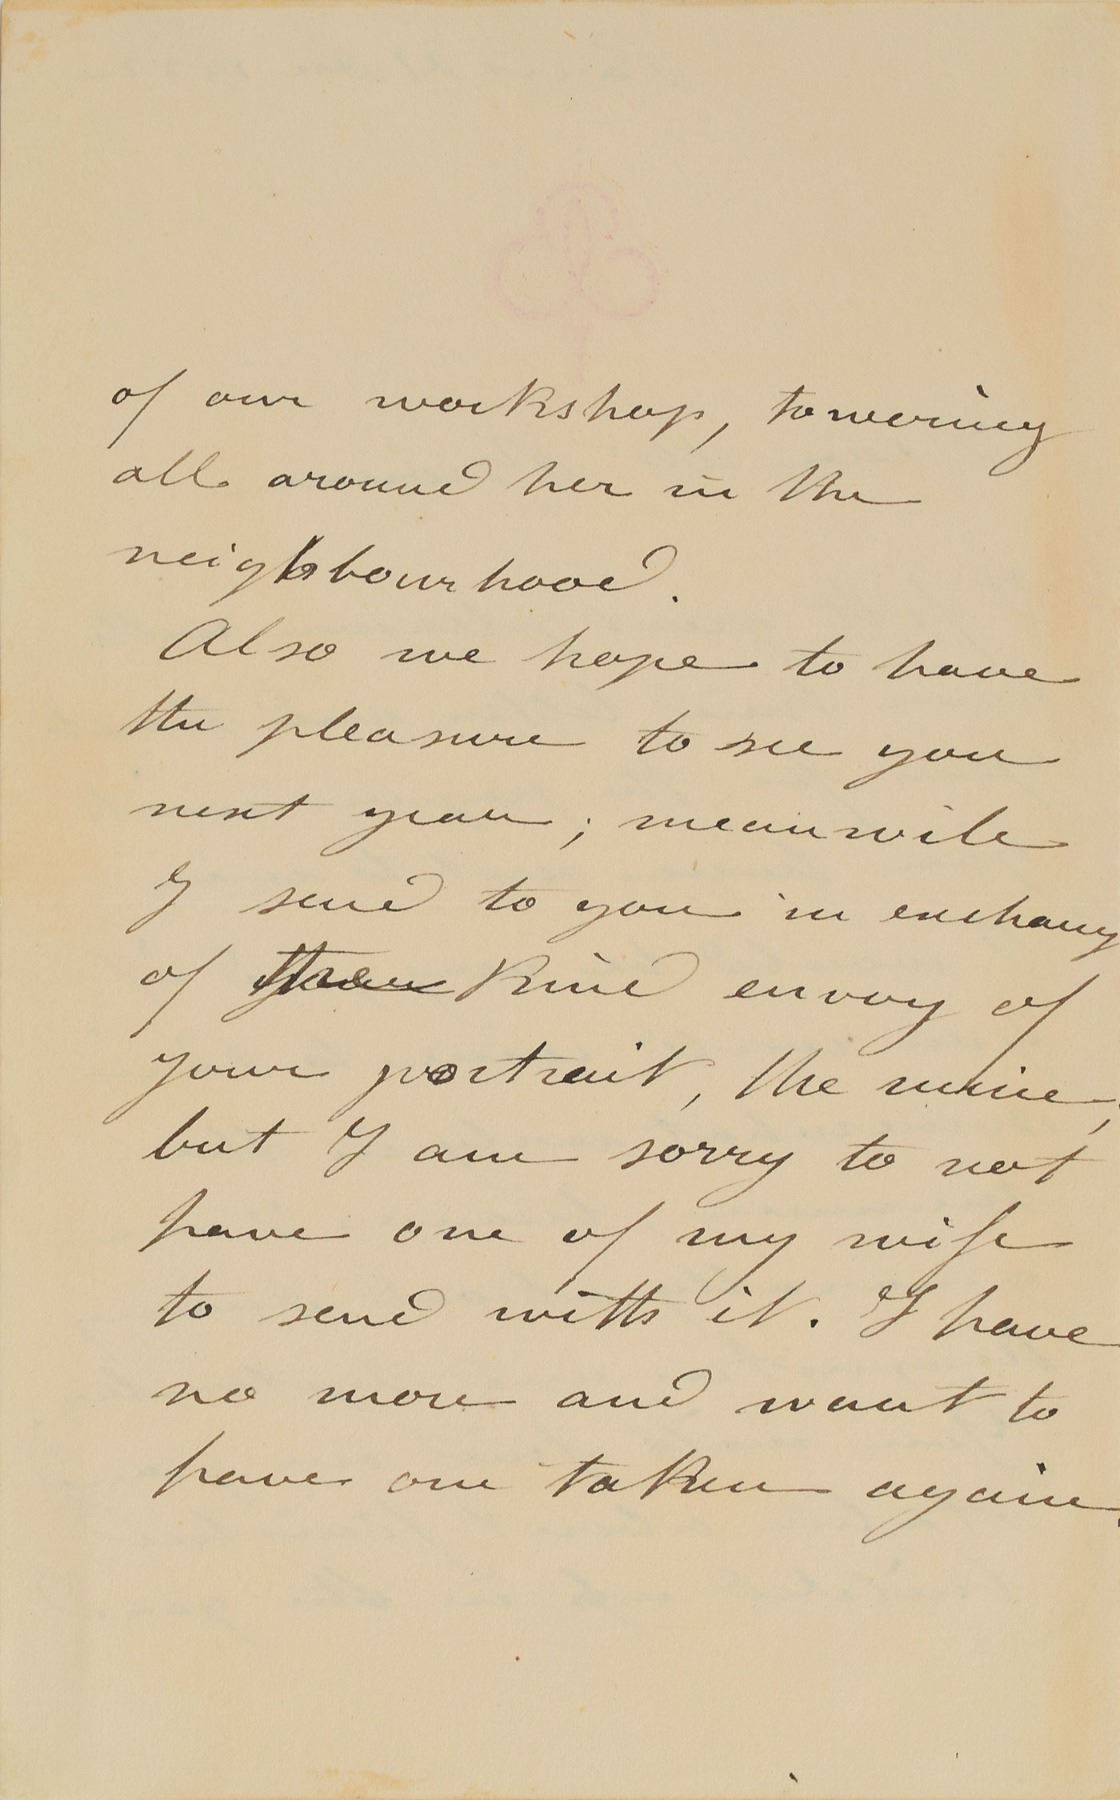 of our workshop, towering
all around her in the
neighbourhood.
Also we hope to have
the pleasure to see you
next year; meanwile
I send to you in enchang
of kind envoy of
your portrait, the mine,
but I am sorry to not
have one of my wife
to send with it. I have
no more and want to
have one taken again.